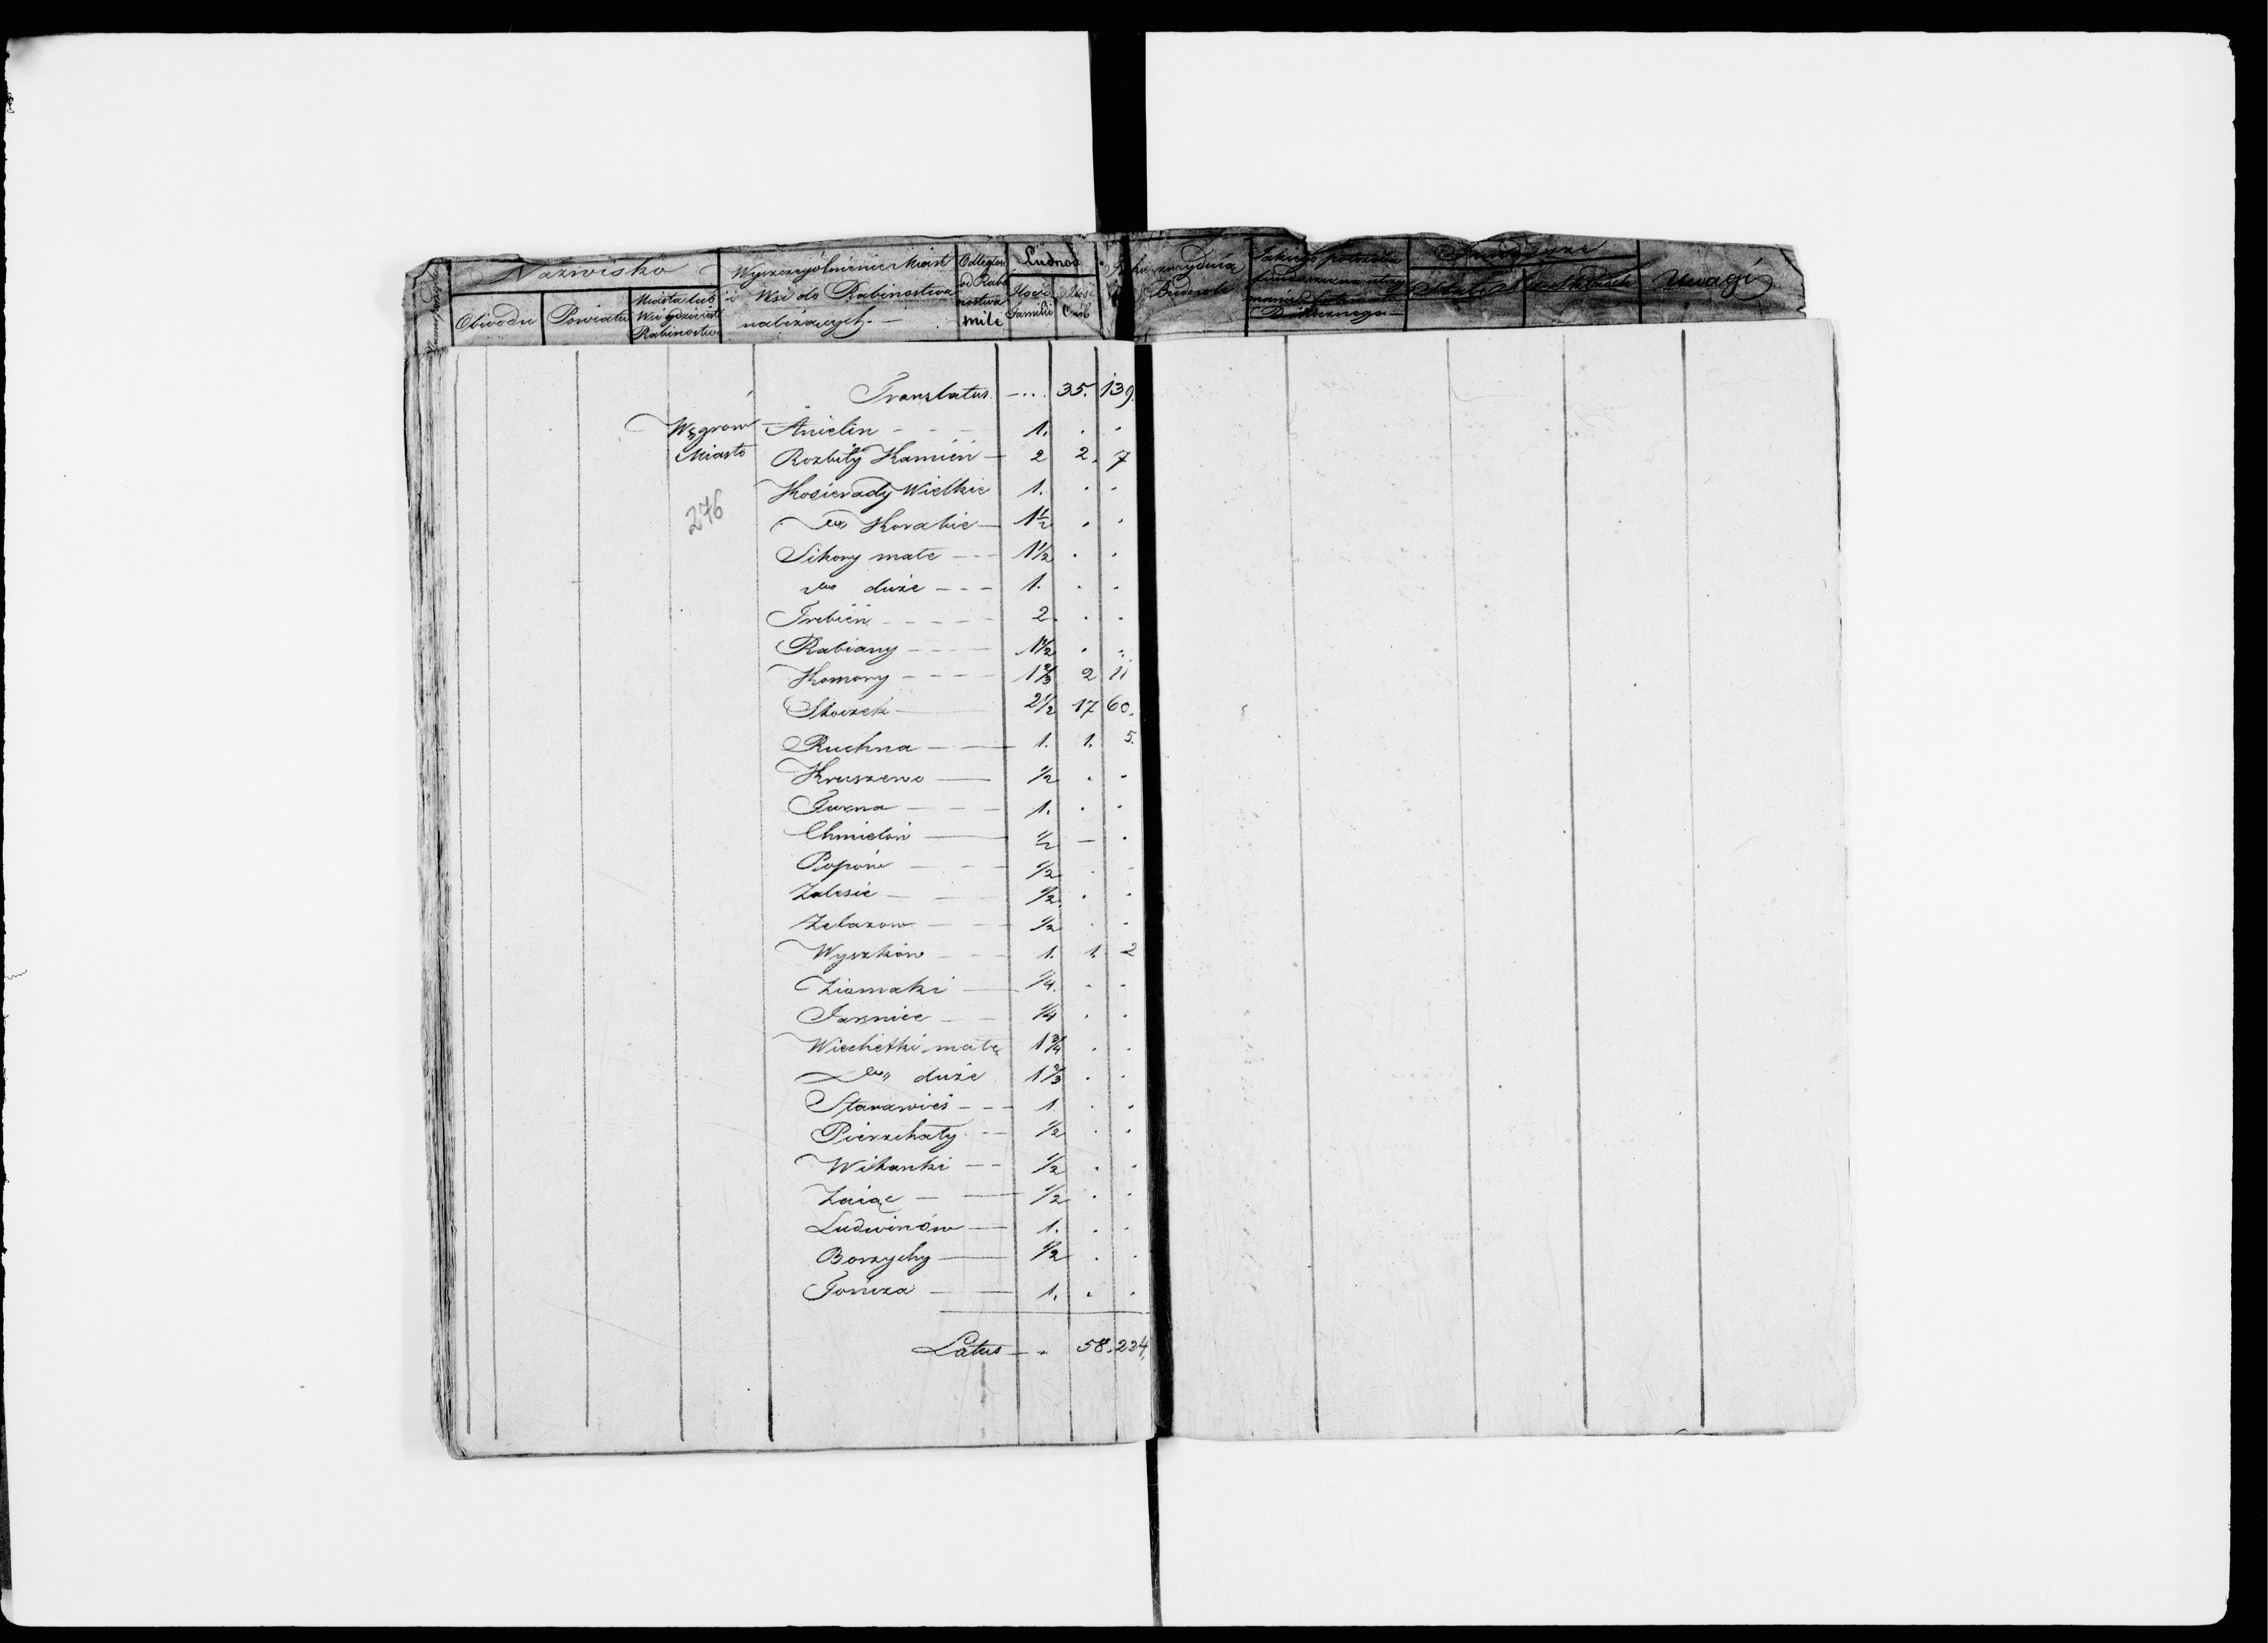 Nazwisko
Obwodu Powiatu Miasta lub Wsi gdzie jest Rabinostwo
Wyszczególnienie Miast i Wsi do Rabinostwa należących.
Odległość od Rabinostwa mile
Ludność
Ilość Familii Ilość Osób
Uwagi
Translatus 35. 139.
Węgrow Anielin 1. . .
Miasto Rozbity Kamień 2 2. 7
Kosierady Wielkie 1. . .
276
Korabie 1 1/2 . .
Sikory małe 1 1/2 . .
duże 1. . .
Trebień 2. . .
Rabiany 1 1/2 . .
Komory 1 2/3 2 11
Stoczek 2 1/2 17 60.
Ruchna 1. 1. 5.
Kruszewo 1/2 . .
Turna 1. . .
Chmielew 1/2 — .
Popów 1/2 . .
Zalesie 1/2. . .
Żelazow 1/2 . .
Wyszków 1. 1. 2
Ziomaki 1/4. . .
Jarnice 1/4 . .
Wiechetki małe 1 3/4 . .
duże 1 2/3 . .
Starawieś 1. . .
Pierzchały 1/2 . .
Witanki 1/2 . .
Zając 1/2 . .
Ludwinów 1. . .
Borzychy 1/2 . .
Tończa 1. . .
Latus 58. 224.